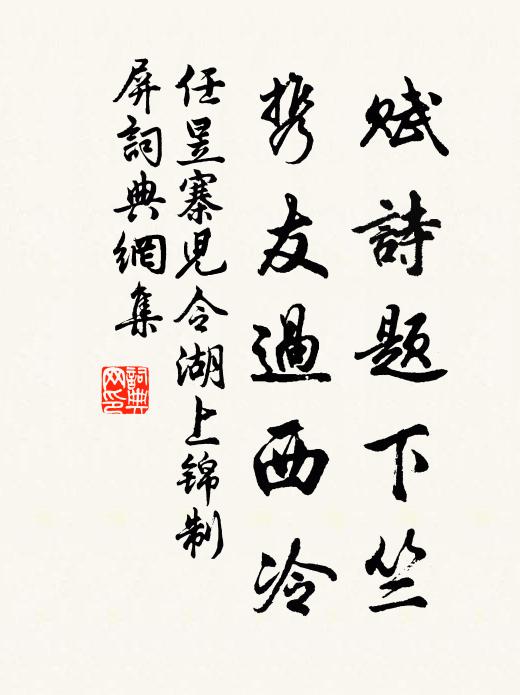 赋詩題下竺
携友過西冷
任昱寨児令湖上錦制
屏詞典網集
詞典网印